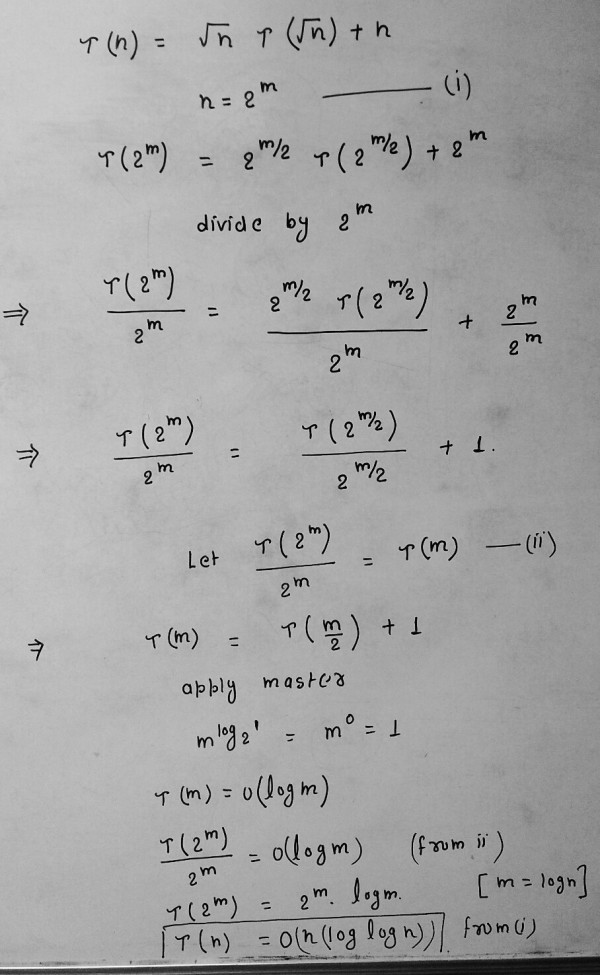 T(n) = √n T(√n) + n
n = 2^m ——— (i)
T(2^m) = 2^{m/2} T(2^{m/2}) + 2^m
divide by 2^m
⇒ T(2^m)/2^m = 2^{m/2} T(2^{m/2})/2^m + 2^m/2^m
⇒ T(2^m)/2^m = T(2^{m/2})/2^{m/2} + 1.
Let T(2^m)/2^m = T(m) —(ii)
⇒ T(m) = T(m/2) + 1
apply master
m^{log_2 1} = m^0 = 1
T(m) = O(log m)
T(2^m)/2^m = O(log m) (from ii)
T(2^m) = 2^m. log m. [m = log n]
T(n) = O(n(log log n)) from (i)